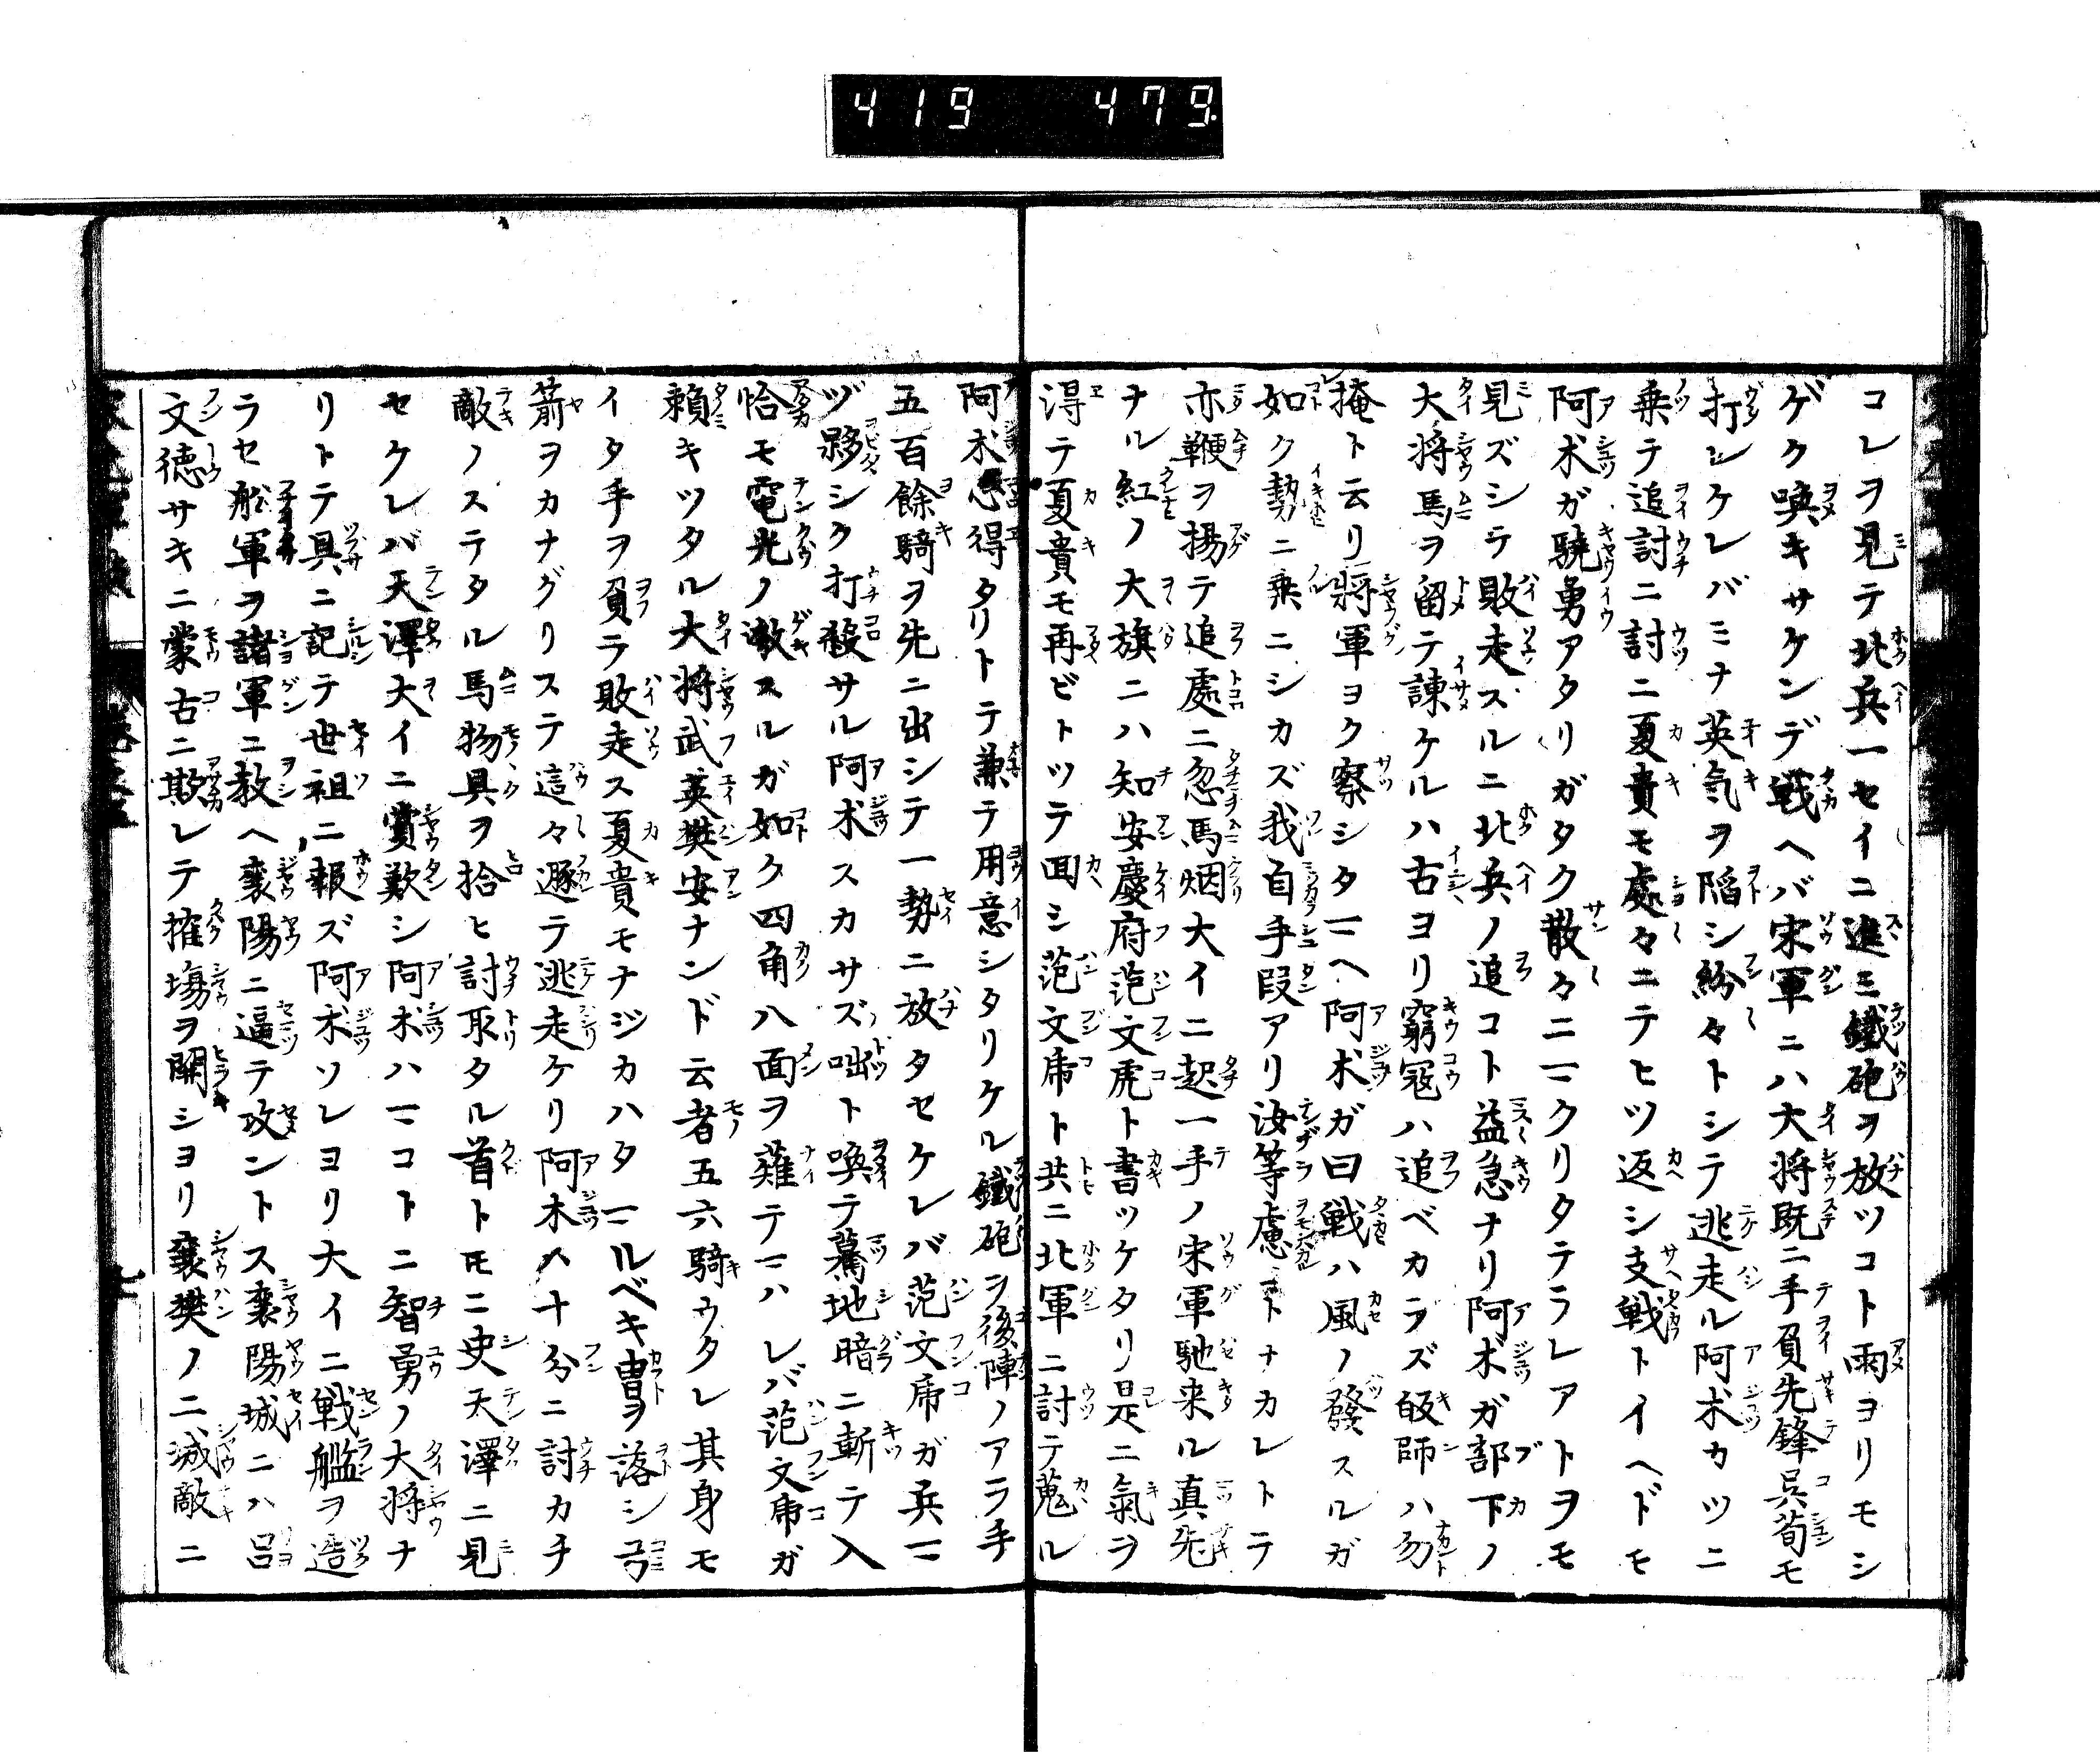 419 479
コレヲ見テ北兵一セイニ進ミ鐵砲ヲ放ツコト雨ヨリモシ
ゲク喚キサケンデ戦ヘバ宋軍ニハ大将既ニ手負先鋒呉荀モ
打レケレバミナ英気ヲ陥シ紛々トシテ逃走ル阿朮カツニ
乗テ追討ニ討ニ夏貴モ處々ニテヒツ返シ支戦トイヘドモ
阿朮ガ驍勇アタリガタク散々ニマクリタテラレアトヲモ
見ズシテ敗走スルニ北兵ノ追コト益急ナリ阿朮ガ部下ノ
大将馬ヲ留テ諫ケルハ古ヨリ窮寇ハ追ベカラズ皈師ハ勿
掩ト云リ将軍ヨク察シタマヘ阿朮ガ曰戦ハ風ノ發スルガ
如ク勢ニ乗ニシカズ我自手段アリ汝等慮コトナカレトテ
亦鞭ヲ揚テ追處ニ忽馬烟大イニ起一手ノ宋軍馳来ル真先
ナル紅ノ大旗ニハ知安慶府范文虎ト書ツケタリ是ニ氣ヲ
得テ夏貴モ再ビトツテ回シ范文虎ト共ニ北軍ニ討テ蒐ル
阿朮心得タリトテ兼テ用意シタリケル鐵砲ヲ後陣ノアラ手
五百餘騎ヲ先ニ出シテ一勢ニ放タセケレバ范文虎ガ兵マ
ヅ夥シク打殺サル阿朮スカサズ咄ト喚テ驀地暗ニ斬テ入
恰モ電光ノ激スルガ如ク四角八面ヲ薙テマハレバ范文虎ガ
頼キツタル大将武英樊安ナンド云者五六騎ウタレ其身モ
イタ手ヲ負テ敗走ス夏貴モナジカハタマルベキ冑ヲ落シ弓
箭ヲカナグリステ這々遯テ逃走ケリ阿朮ハ十分ニ討カチ
敵ノステタル馬物具ヲ拾ヒ討取タル首トモニ史天澤ニ見
セケレバ天澤大イニ賞歎シ阿朮ハマコトニ智勇ノ大将ナ
リトテ具ニ記テ世祖ニ報ズ阿朮ソレヨリ大イニ戦艦ヲ造
ラセ舩軍ヲ諸軍ニ教ヘ襄陽ニ逼テ攻ントス襄陽城ニハ呂
文徳サキニ蒙古ニ欺レテ搉塲ヲ開シヨリ襄樊ノ二城敵ニ